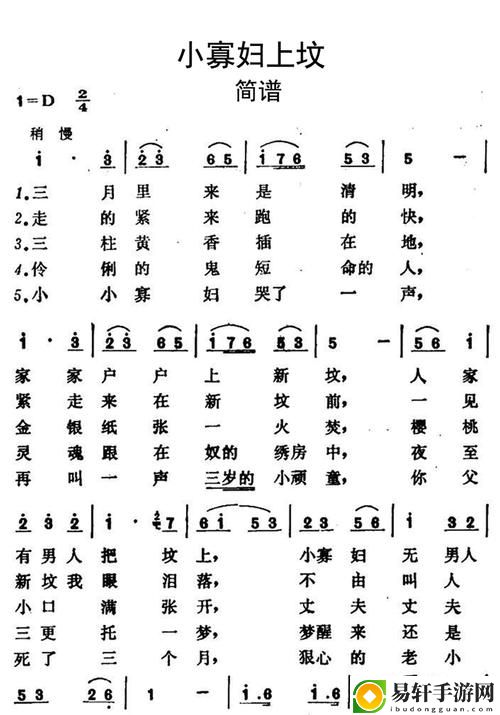 小寡妇上坟
简谱
1=D 2/4
稍慢
i · 3 | 2 3 6 5 | i 7 6 5 3 | 5 - |
1.三月里来是清明,
2.走的紧来跑的快,
3.三柱黄香插在地,
4.伶俐的鬼短命的人,
5.小小寡妇哭了一声,
i · 3 | 2 3 6 5 | i 7 6 5 3 | 5 - | 5 6 i |
家家户户上新坟,人家
紧走来在新坟前,一见
金银纸张一火焚,樱桃
灵魂跟在奴的绣房中,夜至
再叫一声三岁的小顽童,你父
2 3 2 3 | 2 · 1 | 2 7 | 6 i 5 3 | 2 3 5 6 | i 3 2 |
有男人把坟上,小寡妇无男人
新坟我眼泪落,不由叫人
小口满张开,丈夫丈夫
三更托一梦,梦醒来还是
死了三个月,狠心的老小
5 3 5 3 | 2 6 · | 1 - | i · 6 | i · 6
易轩手游网
ibudongguan.com